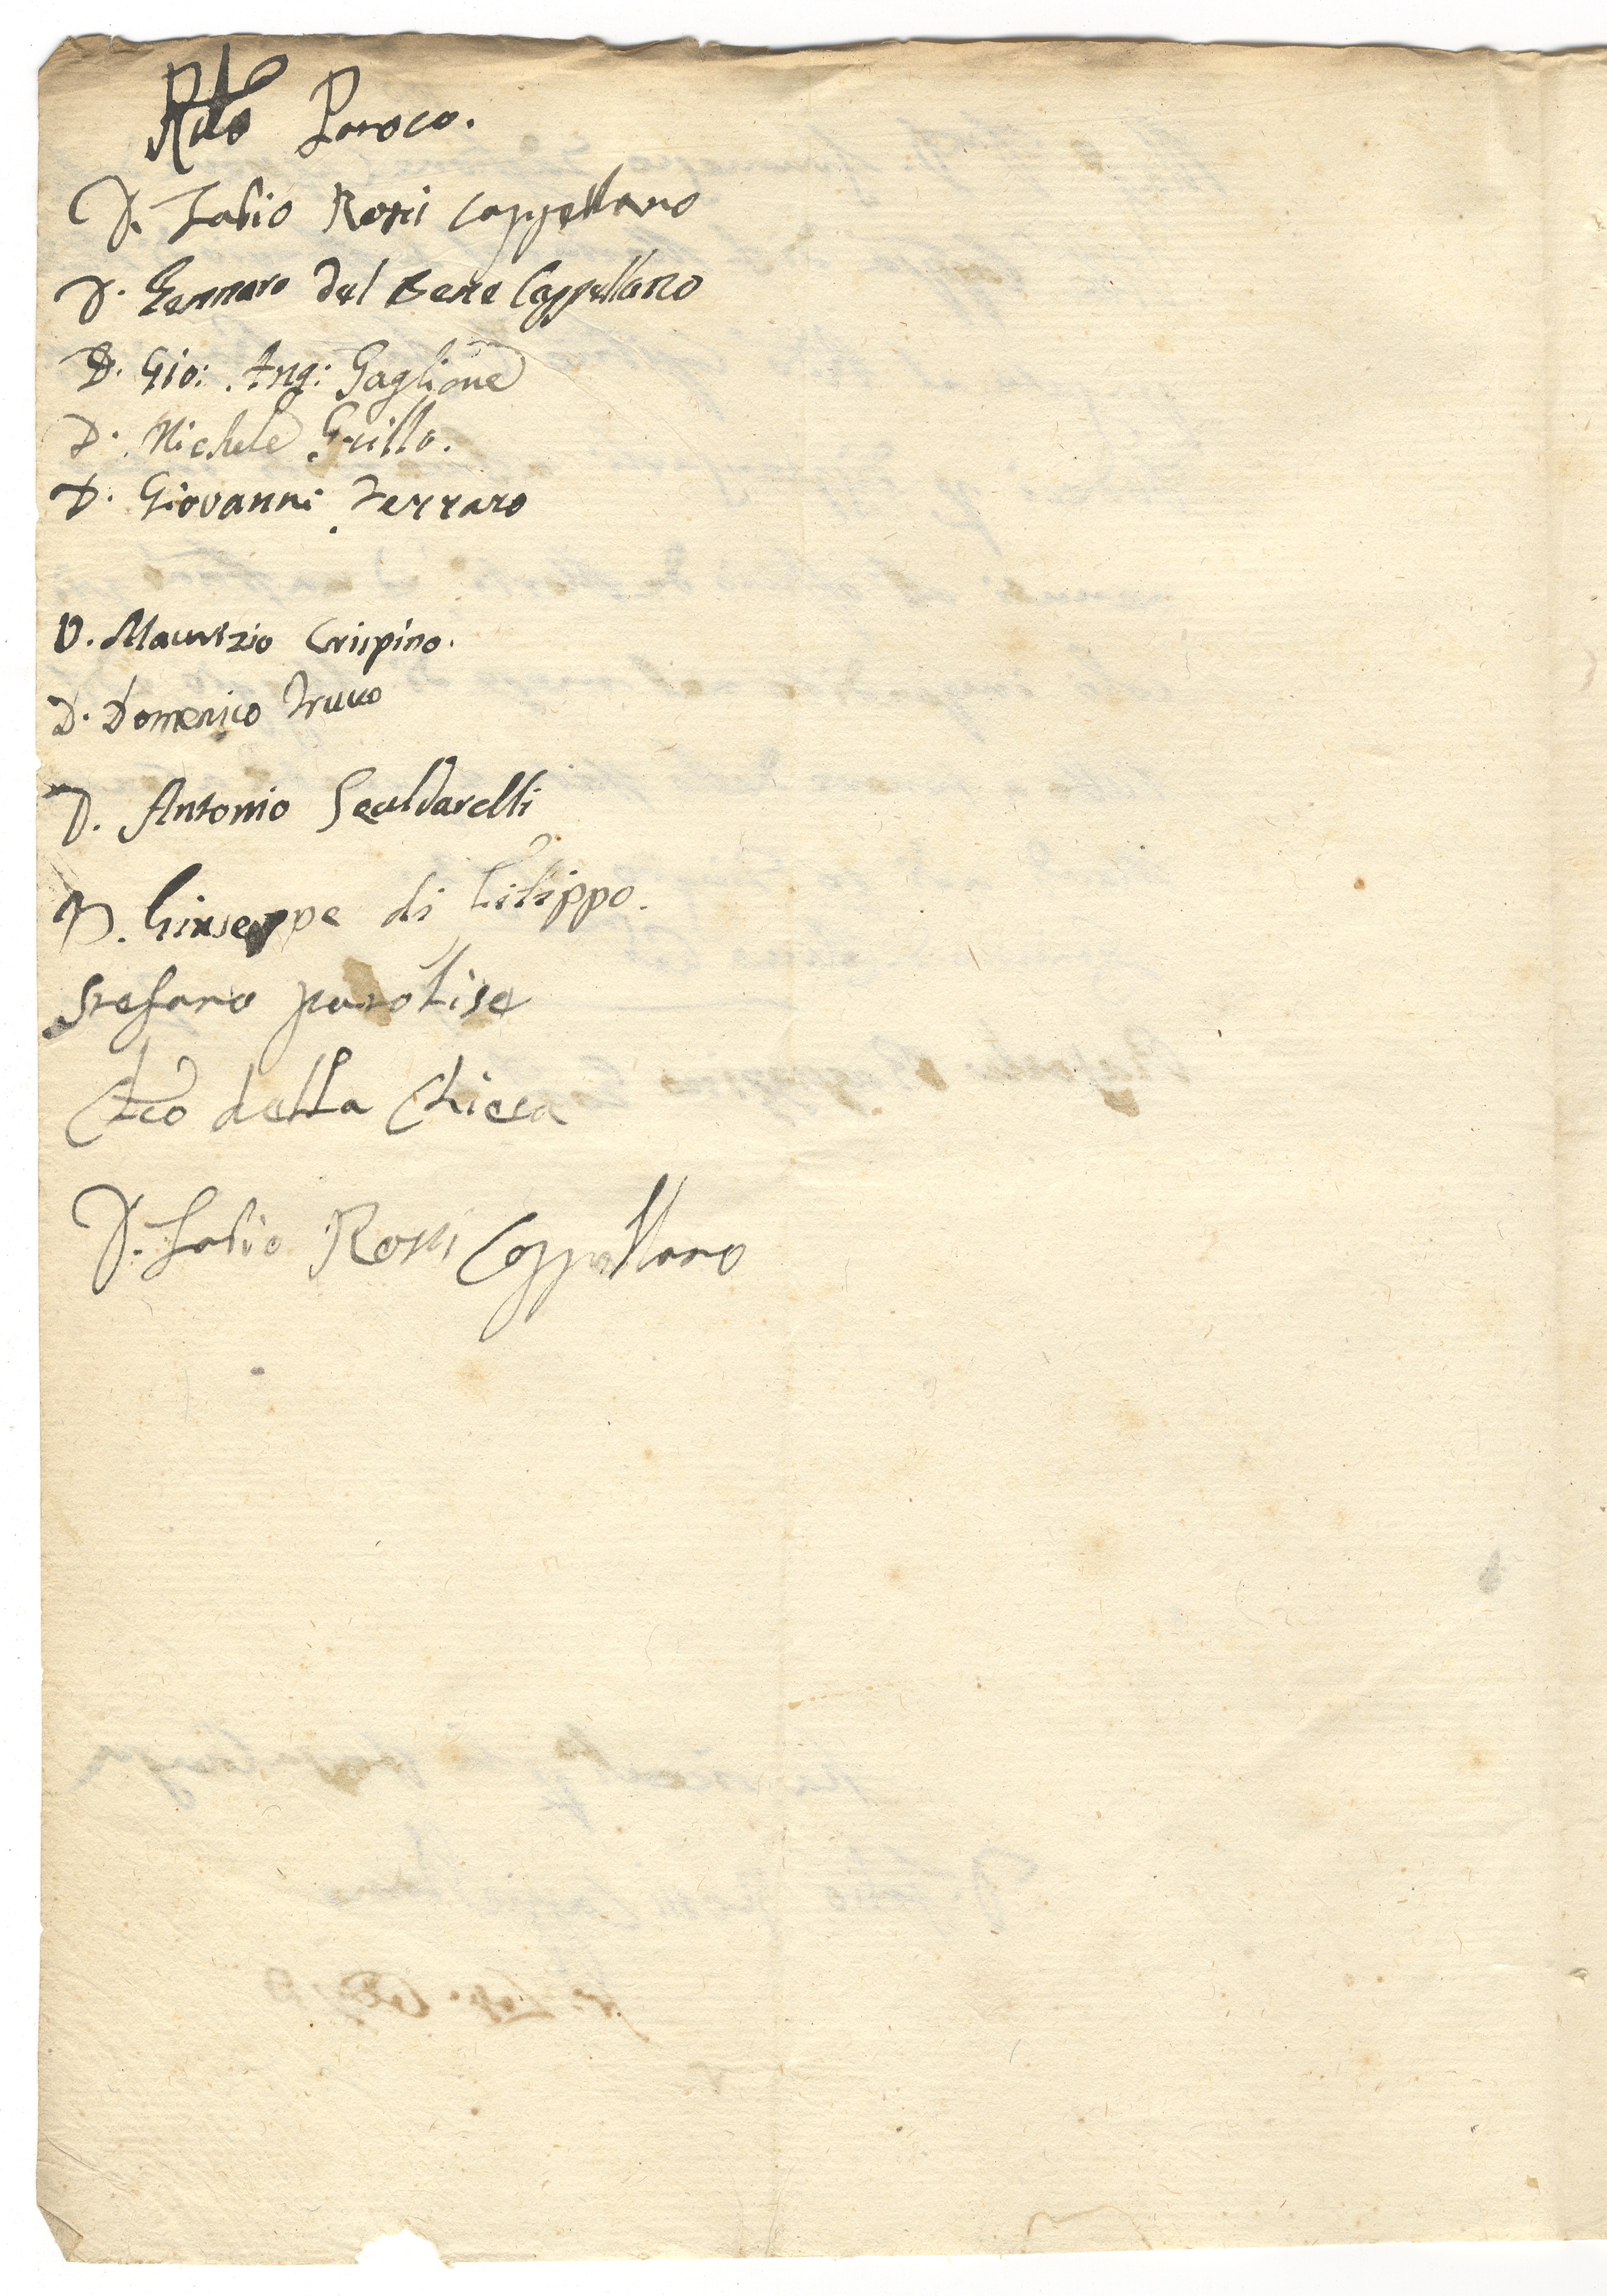 Rdo Paroco.
D. Fabio Rossi Cappellano
D. Gennaro del Bene Cappellano
D. Gio: Ang: Gaglione
D. Michele Grillo.
D. Giovanni Ferraro
D. Maurizio Crispino.
D. Domenico
D. Antonio
D. Giuseppe di Filippo.
Stefano parolise
della Chiesa
D. Fabio Rossi Cappellano